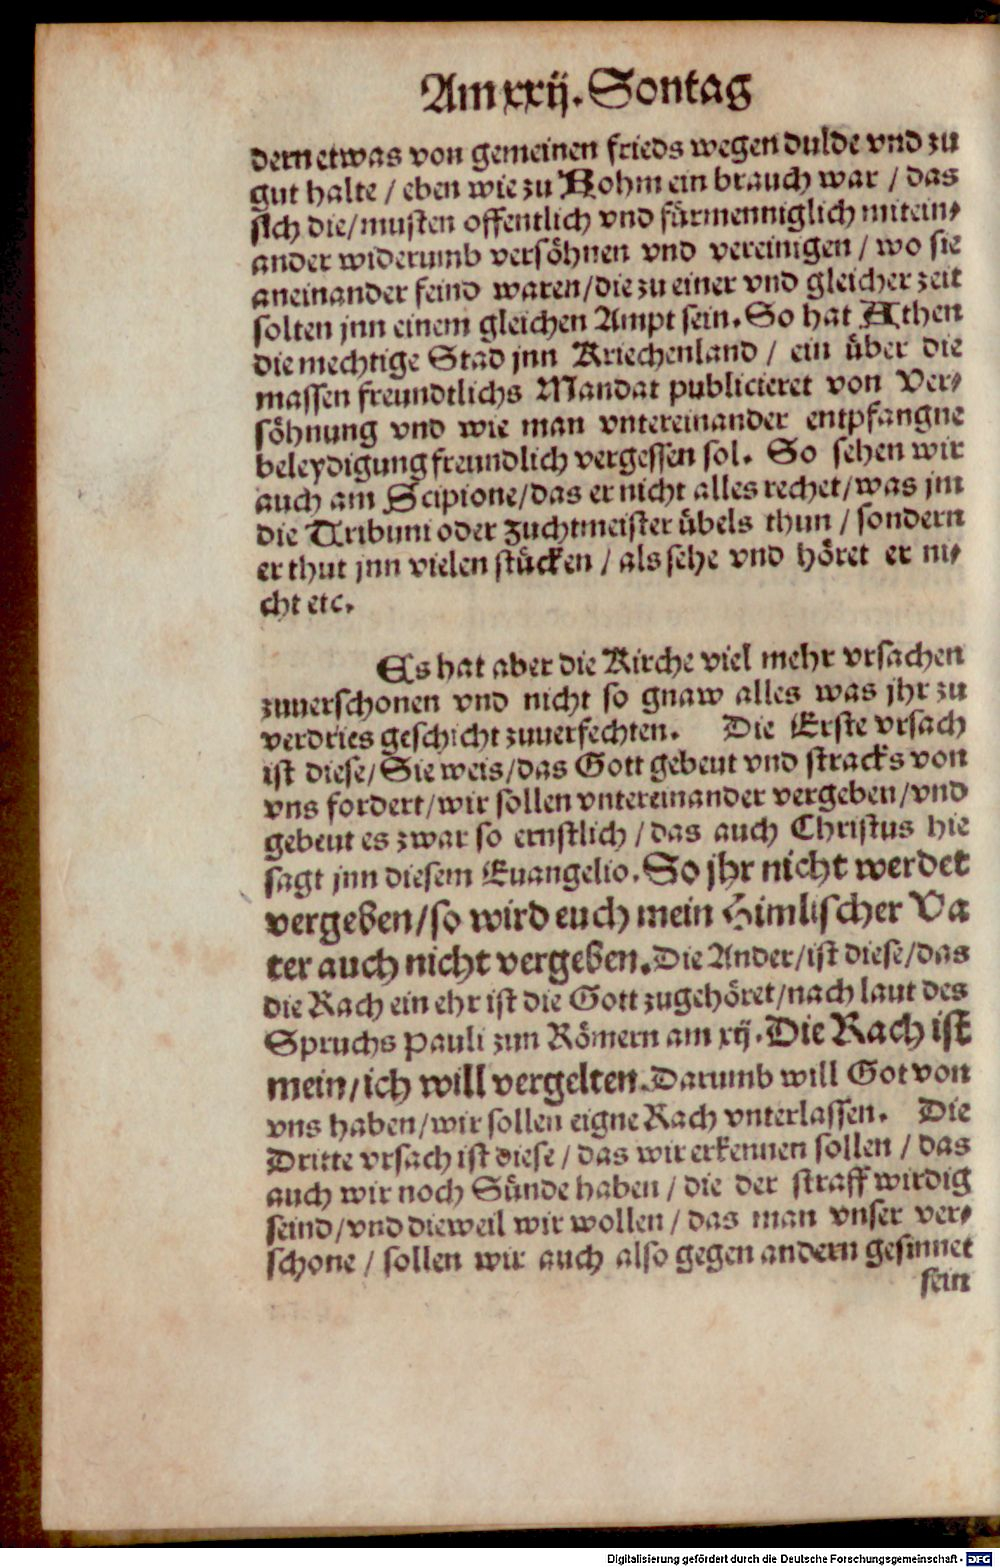 Am xxij. Sontag
dern etwas von gemeinen frieds wegen dulde vnd zu
gut halte / eben wie zu Rohm ein brauch war / das
sich die / musten offentlich vnd fürmenniglich mitein⸗
ander widerumb versöhnen vnd vereinigen / wo sie
aneinander feind waren / die zu einer vnd gleicher zeit
solten jnn einem gleichen Ampt sein. So hat Athen
die mechtige Stad jnn Kriechenland / ein über die
massen freundtlichs Mandat publicieret von Ver⸗
söhnung vnd wie man vntereinander entpfangne
beleydigung freundlich vergessen sol. So sehen wir
auch am Scipione / das er nicht alles rechet / was jm
die Tribuni oder Zuchtmeister übels thun / sondern
er thut jnn vielen stücken / als sehe vnd höret er ni⸗
cht etc.
Es hat aber die Kirche viel mehr vrsachen
zuuerschonen vnd nicht so gnaw alles was jhr zu
verdries geschicht zuuerfechten. Die Erste vrsach
ist diese / Sie weis / das Gott gebeut vnd stracks von
vns fordert / wir sollen vntereinander vergeben / vnd
gebeut es zwar so ernstlich / das auch Christus hie
sagt jnn diesem Euangelio. So jhr nicht werdet
vergeben / so wird euch mein Himlischer Va
ter auch nicht vergeben. Die Ander / ist diese / das
die Rach ein ehr ist die Gott zugehöret / nach laut des
Spruchs Pauli zun Römern am xij. Die Rach ist
mein / ich will vergelten. Darumb will Got von
vns haben / wir sollen eigne Rach vnterlassen. Die
Dritte vrsach ist diese / das wir erkennen sollen / das
auch wir noch Sünde haben / die der straff wirdig
seind / vnd dieweil wir wollen / das man vnser ver⸗
schone / sollen wir auch also gegen andern gesinnet
sein
Digitalisierung gefördert durch die Deutsche Forschungsgemeinschaft - DFG